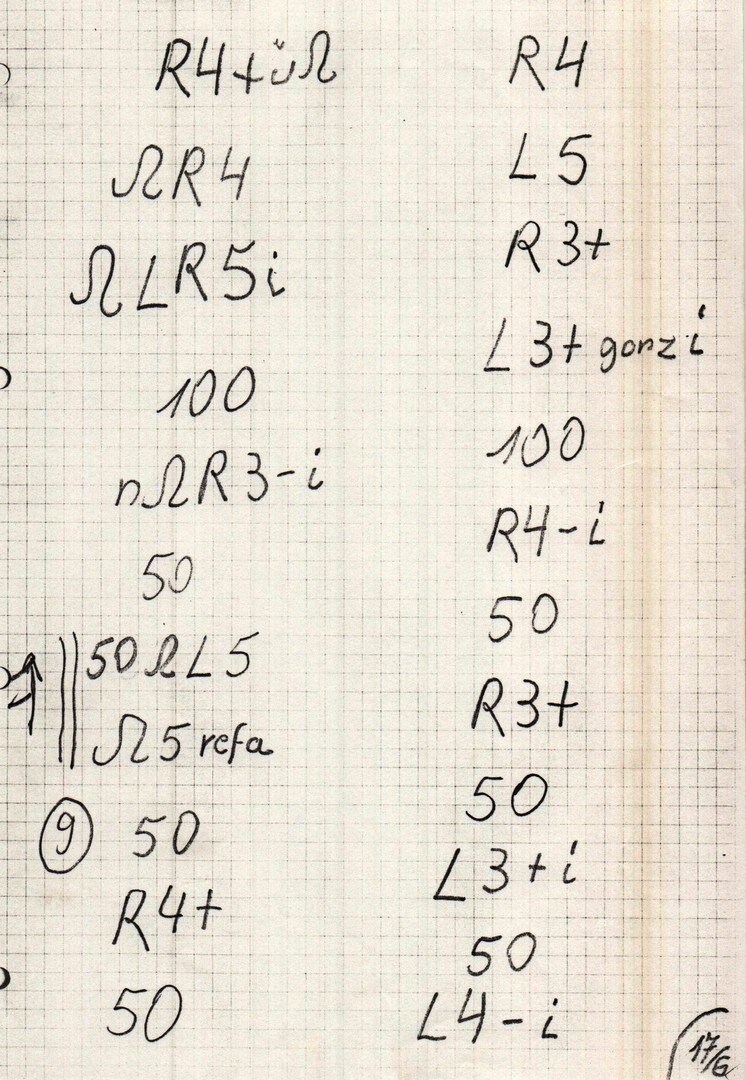 R4+üΩ
ΩR4
ΩLR5i
100
nΩR3-i
50
50ΩL5
Ω5 refa
9 50
R4+
50
R4
L5
R3+
L3+ gonzi
100
R4-i
50
R3+
50
L3+i
50
L4-i
17/6